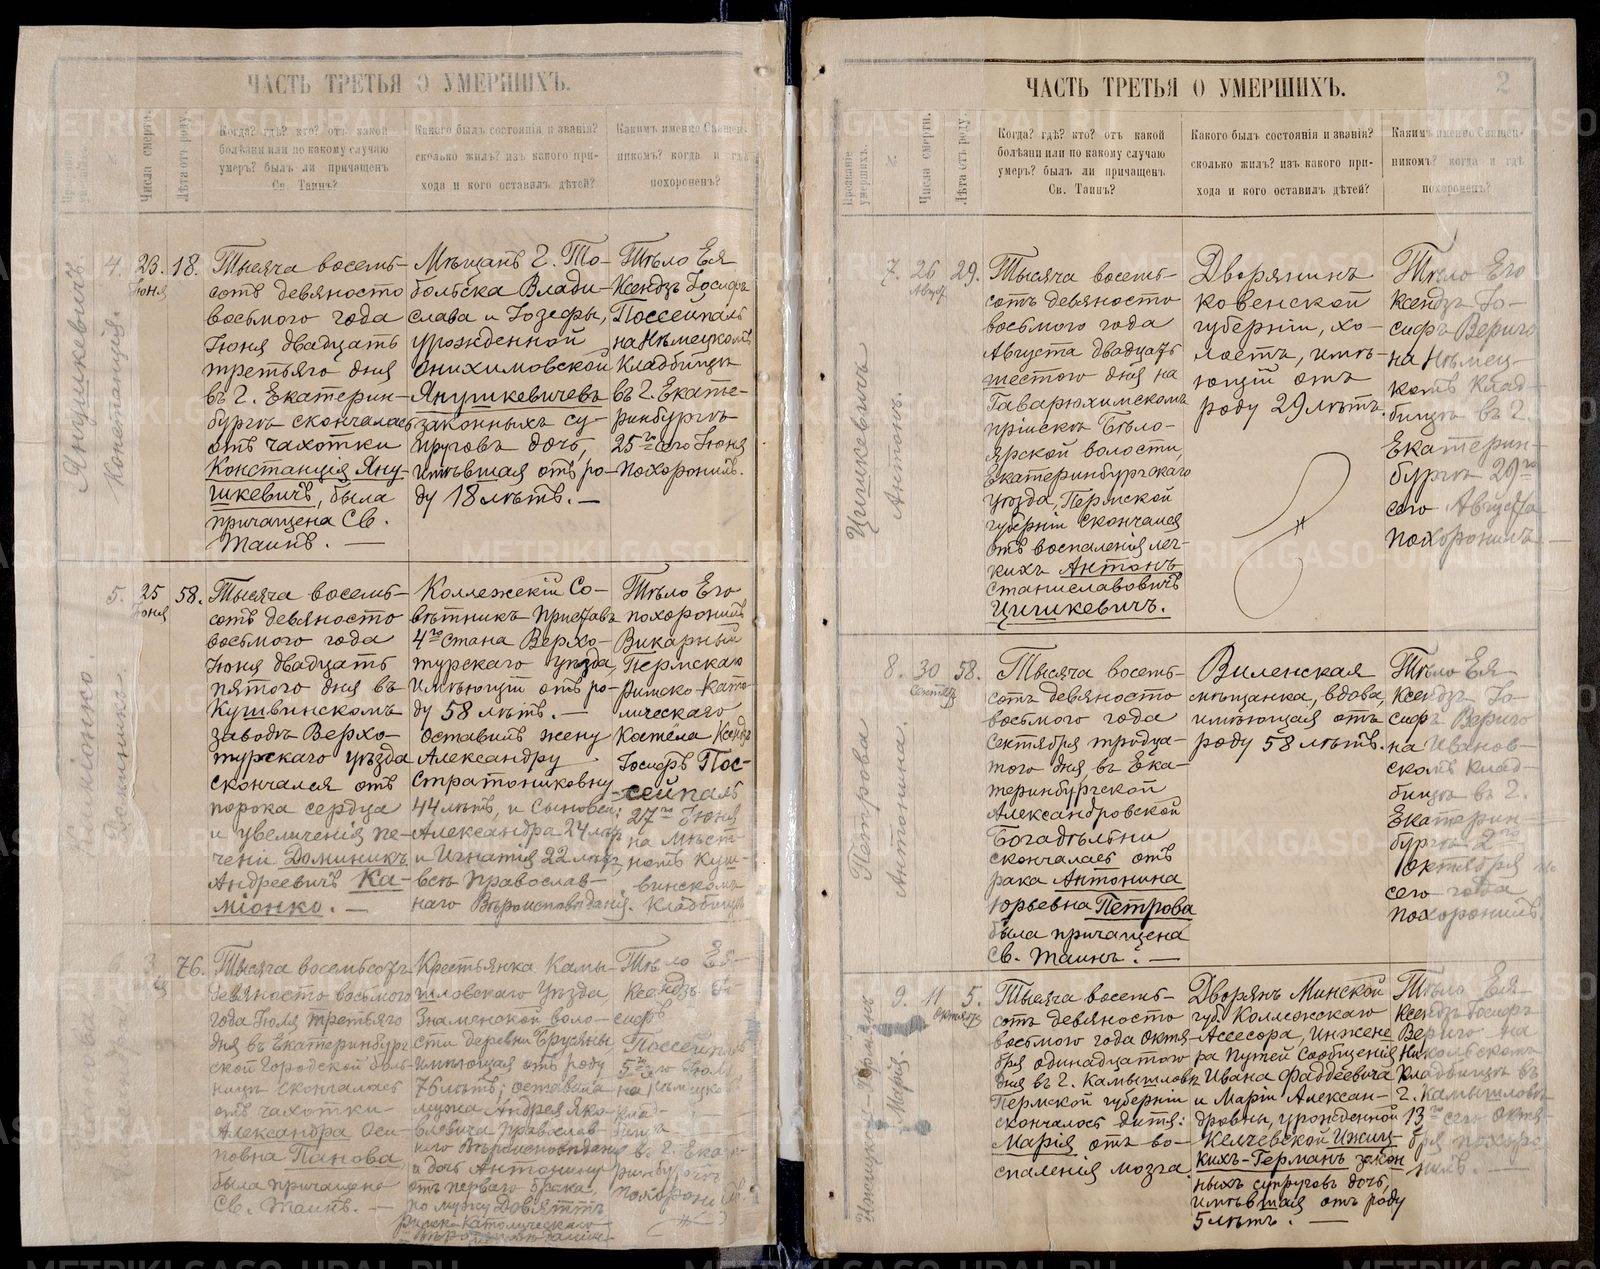 ЧАСТЬ ТРЕТЬЯ О УМЕРШИХЪ.
Числа смерти.
Лѣта отъ роду.
Когда? гдѣ? кто? отъ какой
болѣзни или по какому случаю
умеръ? былъ ли причащенъ
Св. Таинъ?
Какого былъ состоянія и званія?
сколько жилъ? изъ какого при-
хода и кого оставилъ дѣтей?
Какимъ именно Священ-
никомъ? когда и гдѣ
похороненъ?
Янушкевичъ.
Констанція.
4.
23.
Іюня
18.
Тысяча восемь-
сотъ девяносто
восьмого года
Іюня двадцать
третьяго дня
въ г. Екатерин-
бургѣ скончалась
отъ чахотки
Констанція Яну-
шкевичъ, была
причащена Св.
Таинъ. —
Мѣщанъ г. То-
больска Влади-
слава и Іозефы,
урожденной
Онихимовской
Янушкевичевъ
законныхъ су-
пруговъ дочь,
имѣвшая отъ ро-
ду 18 лѣтъ. —
Тѣло Ея
Ксендзъ Іосифъ
Поссейпаль
на Нѣмецкомъ
Кладбищѣ
въ г. Екате-
ринбургѣ
25го сего Іюня
похоронилъ.
Каміонко.
Доминико.
5.
25
Іюня
58.
Тысяча восемь-
сотъ девяносто
восьмого года
Іюня двадцать
пятого дня въ
Кушвинскомъ
заводѣ Верхо-
турскаго уѣзда
скончался отъ
порока сердца
и увеличенія пе-
чени Доминикъ
Андреевичъ Ка-
міонко. —
Коллежскій Со-
вѣтникъ Приставъ
4го стана Верхо-
турскаго уѣзда,
имѣющій отъ ро-
ду 58 лѣтъ. —
Оставилъ жену
Александру
Стратониковну
44 лѣтъ, и Сыновей:
Александра 24 лѣтъ
и Игнатія 22 лѣтъ,
всѣ православ-
наго Вѣроисповѣданія.
Тѣло Его
похоронилъ
Викарный
Пермскаго
Римско-Като-
лическаго
Костёла Ксендзъ
Іосифъ Пос-
сейпаль
27го Іюня
на Мѣст-
номъ Куш-
винскомъ
Кладбищѣ
76.
Тысяча восемьсотъ
девяносто восьмого
года Іюля третьяго
дня въ Екатеринбург-
ской Городской боль-
ницѣ скончалась
отъ чахотки
Александра Оси-
повна Панова,
была причащена
Св. Таинъ. —
Крестьянка Камы-
шловскаго Уѣзда,
Знаменской воло-
сти деревни Брусяны,
имѣющая отъ роду
76 лѣтъ; оставила
мужа Андрея Яко-
влевича православ-
наго Вѣроисповѣданія
и дочь Антонину
отъ перваго брака,
по мужу
Римско-Католическаго
Тѣло Ея
Ксендзъ Іо-
сифъ
Поссейпаль
5го Іюля
на Нѣмецко
клад-
бищѣ
въ г. Екате-
ринбургѣ
похоронилъ
ЧАСТЬ ТРЕТЬЯ О УМЕРШИХЪ.
2
Прозваніе умершихъ.
Числа смерти.
Лѣта отъ роду.
Когда? гдѣ? кто? отъ какой
болѣзни или по какому случаю
умеръ? былъ ли причащенъ
Св. Таинъ?
Какого былъ состоянія и званія?
сколько жилъ? изъ какого при-
хода и кого оставилъ дѣтей?
Какимъ именно Священ-
никомъ? когда и гдѣ
похороненъ?
Цишкевичъ
Антонъ.
7.
26
Август
29.
Тысяча восемь-
сотъ девяносто
восьмого года
Августа двадцать
шестого дня на
Гаварюхимскомъ
пріискѣ Бѣло-
ярской волости,
Екатеринбургскаго
уѣзда, Пермской
губерніи скончался
отъ воспаленія лег-
кихъ Антонъ
Станиславовичъ
Цишкевичъ.
Дворянинъ
Ковенской
губерніи, хо-
лостъ, имѣ-
ющій отъ
роду 29 лѣтъ.
Тѣло Его
Ксендзъ Іо-
сифъ Вериго
на Нѣмец-
комъ Клад-
бищѣ въ г.
Екатерин-
бургѣ 29го
сего Августа
похоронилъ.
Петрова
Антонина.
8.
30
Сентябр
58.
Тысяча восемь-
сотъ девяносто
восьмого года
Сентября тридца-
того дня, въ Ека-
теринбургской
Александровской
Богадѣльни
скончалась отъ
рака Антонина
Юрьевна Петрова
была причащена
Св. Таинъ. —
Виленская
мѣщанка, вдова,
имѣющая отъ
роду 58 лѣтъ.
Тѣло Ея
Ксендзъ Іо-
сифъ Вериго
на Иванов-
скомъ клад-
бищѣ въ г.
Екатерин-
бургѣ 2го
Октября
сего года
похоронилъ.
Ижицкихъ-Германъ
Марія.
9.
11
Октября
5.
Тысяча восемь-
сотъ девяносто
восьмого года Октя-
бря одинадцатого
дня въ г. Камышловѣ
Пермской губерніи
скончалось дитя:
Марія отъ во-
спаленія мозга
Дворянъ Минской
губ. Коллежскаго
Ассесора, Инжене
ра Путей Сообщенія
Ивана Фаддеевича
и Маріи Алексан-
дровны, урожденной
Келчевской Ижиц-
кихъ-Германъ закон
ныхъ супруговъ дочь,
имѣвшая отъ роду
5 лѣтъ. —
Тѣло Ея
Ксендзъ Іосифъ
Вериго на
Никольскомъ
Кладбищѣ въ
г. Камышловѣ
13го сего Октя-
бря похоро-
нилъ. —